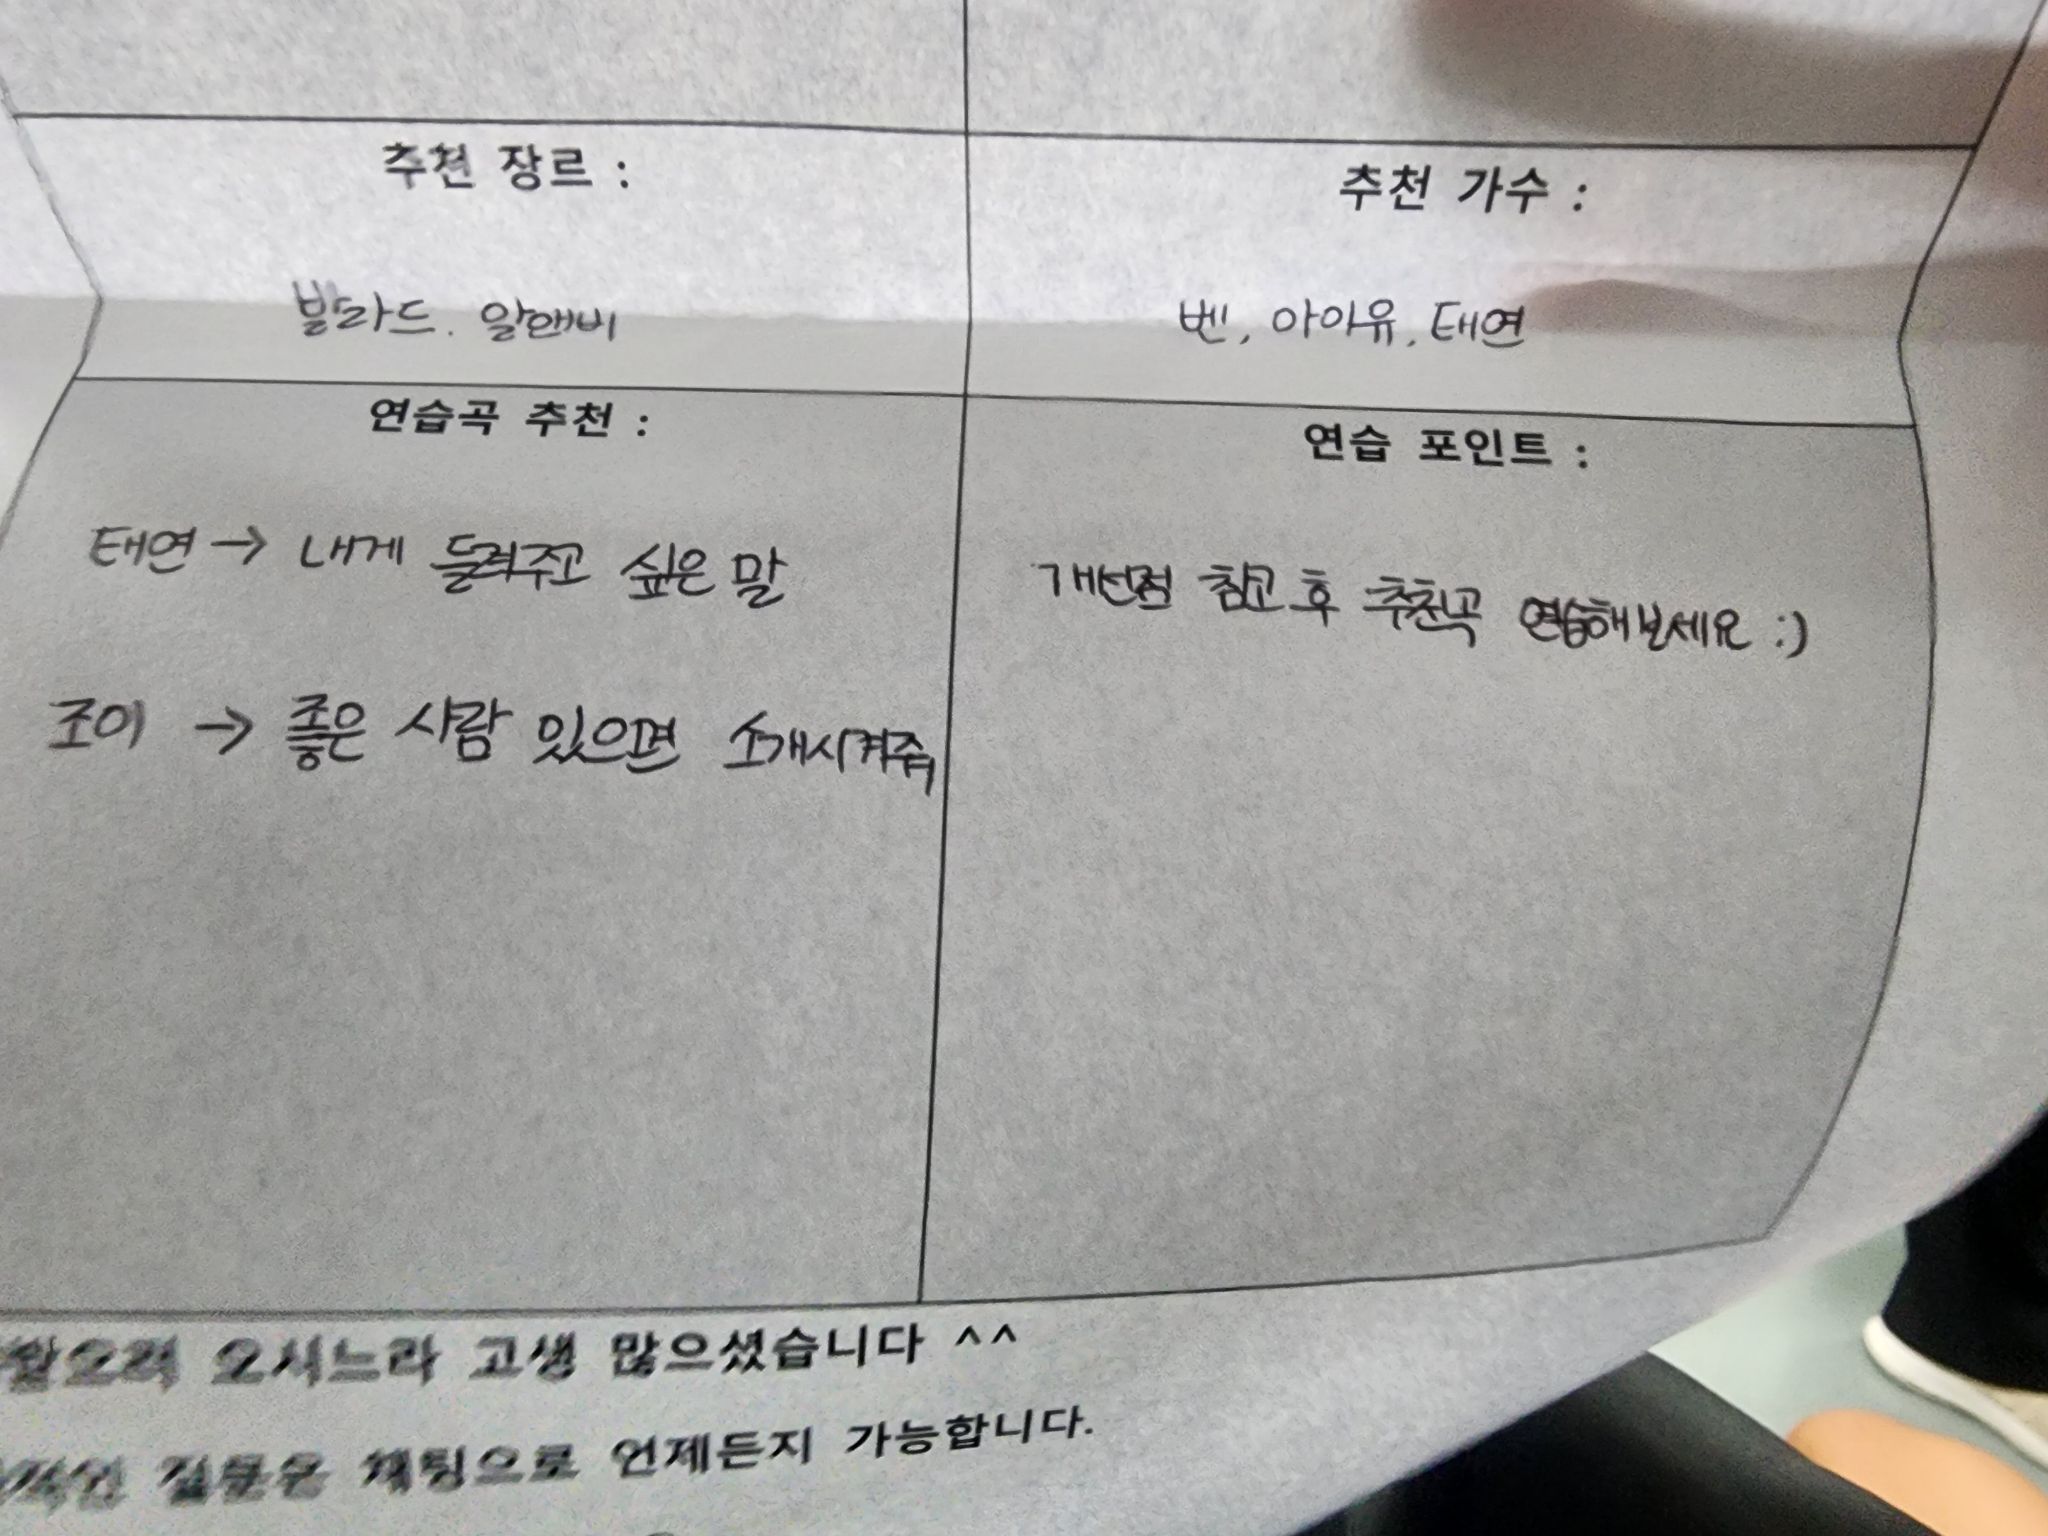 추천 장르 :
추천 가수 :
발라드. 알앤비
벤, 아이유, 태연
연습곡 추천 :
연습 포인트 :
태연 → 내게 들려주고 싶은 말
개선점 참고 후 추천곡 연습해보세요 :)
조이 → 좋은 사람 있으면 소개시켜줘
오시느라 고생 많으셨습니다 ^^
질문은 채팅으로 언제든지 가능합니다.